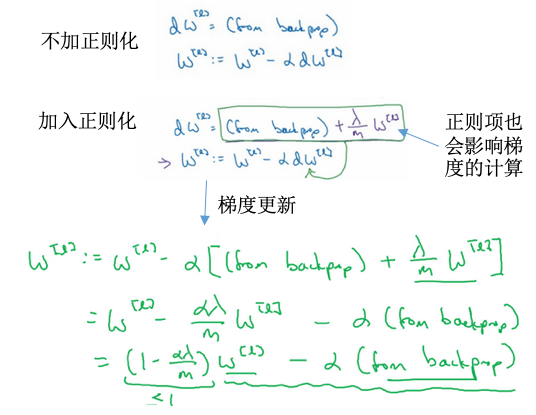 不加正则化
dW^[l] = (from backprop)
W^[l] := W^[l] - α dW^[l]
加入正则化
dW^[l] = (from backprop) + λ/m W^[l]
→ W^[l] := W^[l] - α dW^[l]
正则项也
会影响梯
度的计算
梯度更新
W^[l] := W^[l] - α [(from backprop) + λ/m W^[l]]
= W^[l] - αλ/m W^[l] - α (from backprop)
= (1 - αλ/m) W^[l] - α (from backprop)
<1